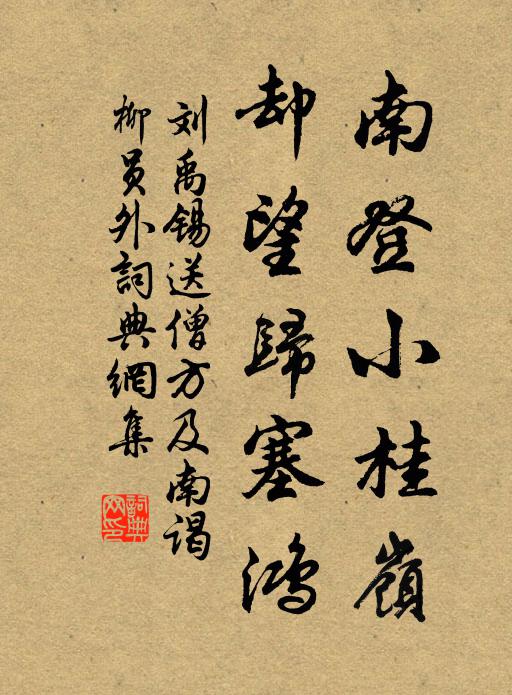 南登小桂嶺
却望歸塞鴻
刘禹锡送僧方及南谒
柳员外詞典網集
詞典网印